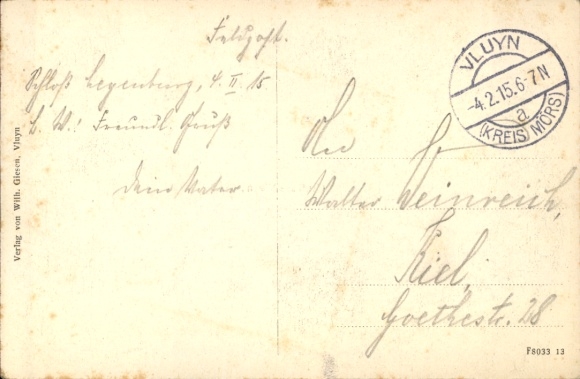 Feldpost.
Schloß Leyenburg, 4. II. 15
L. W.! Freundl. Gruß
Dein Vater
VLUYN
-4.2.15.6-7N
a
(KREIS MÖRS)
An
Walter Weinreich,
Kiel,
Goethestr. 28
Verlag von Wilh. Giesen, Vluyn
F8033 13